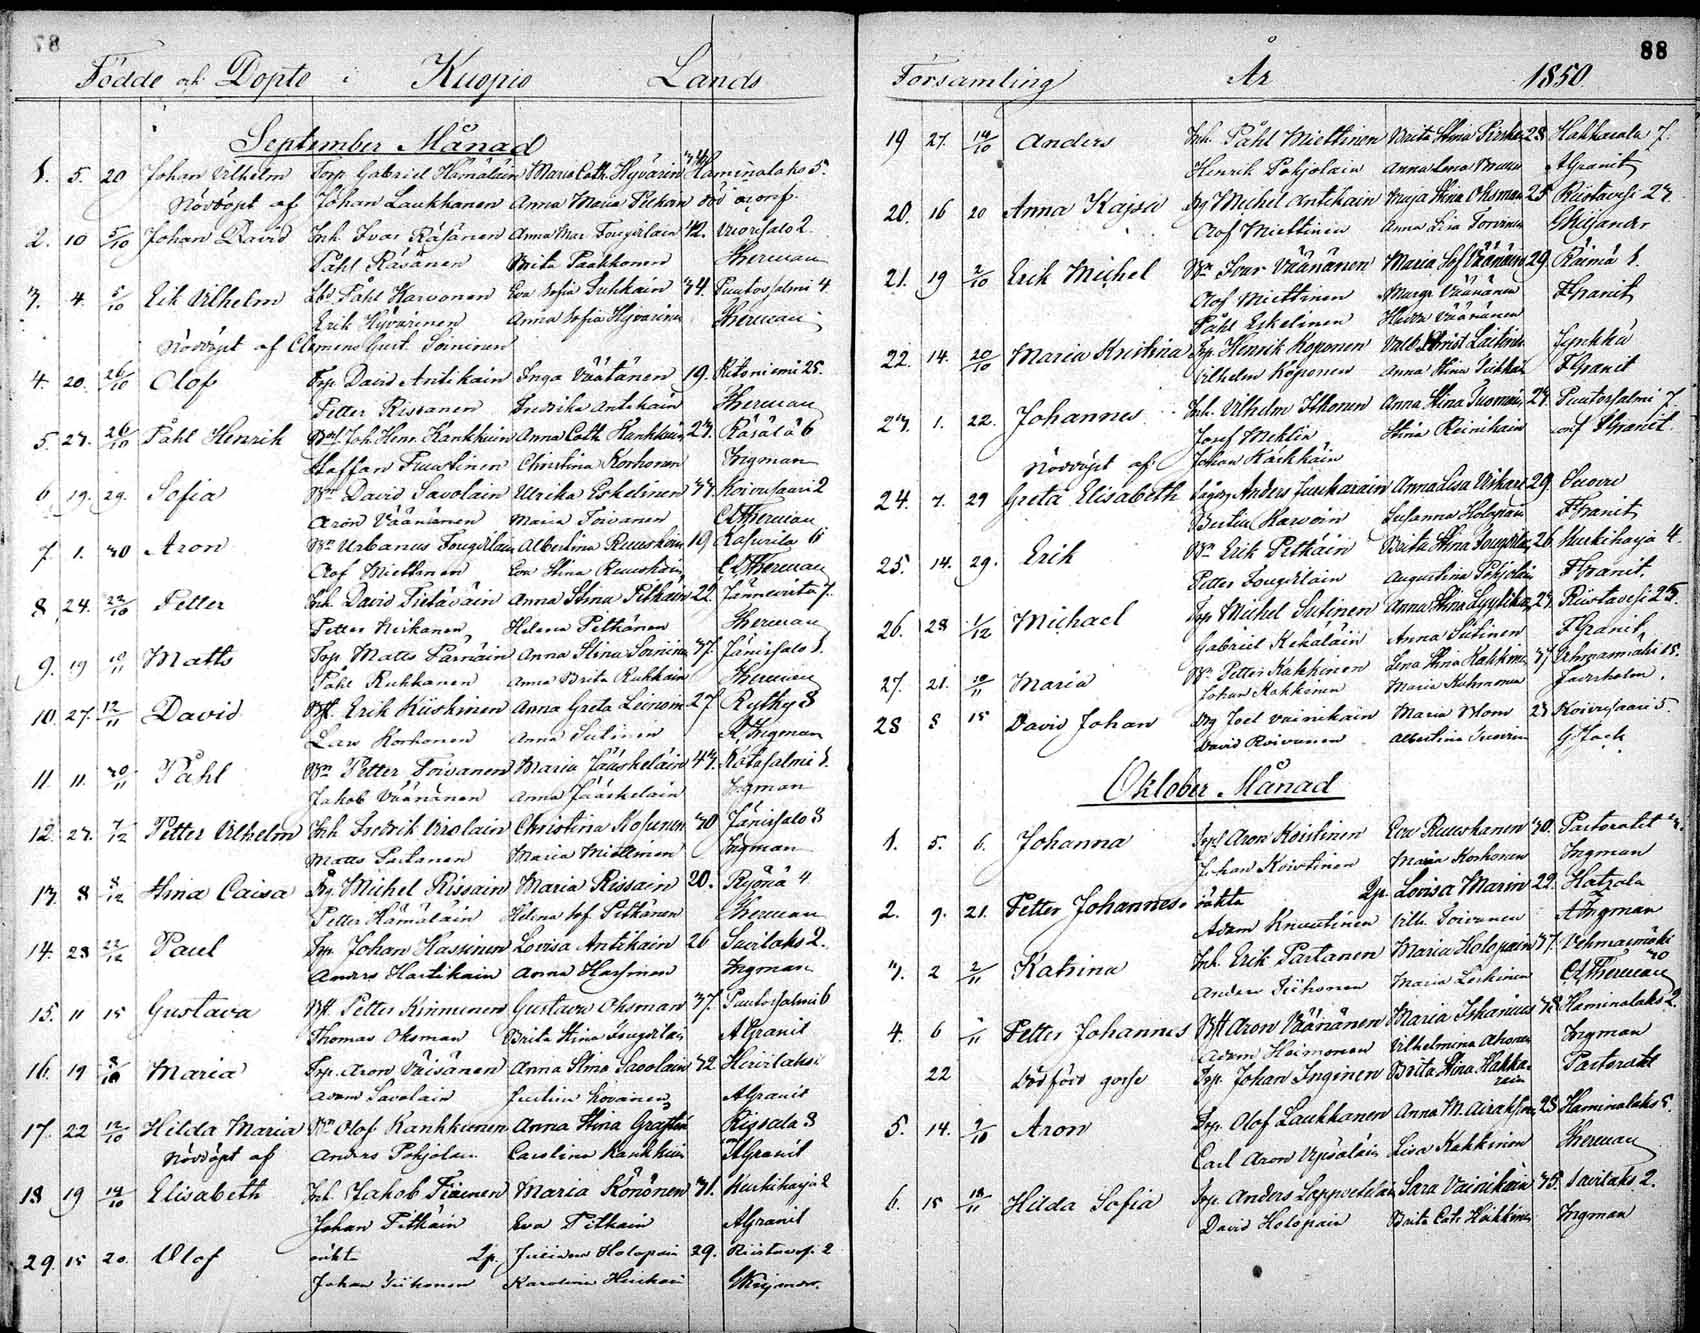 87
Födde och Döpte i Kuopio Lands
September Månad
1. 5. 20 Johan Vilhelm Torp. Gabriel Hämäläin Maria Cath. Hyvärin 34 Haminalaks 5.
Nöddöpt af Johan Laukkanen Anna Maria Pitkäin
2. 10 5/10 Johan David Inh. Ivar Räsänen Anna Mar. Tougerlain 42. Vuorisalo 2.
Påhl Räsänen Brita Paakkonen Therman
3. 4. 5/10 Erik Vilhelm Påhl Karvonen Eva Sofia Suhkain 34. Puutosalmi 4
Erik Hyvärinen Anna Sofia Hyvärinen Therman
Nöddöpt af Clemens Gust. Soininen
4. 20. 26/10 Olof Torp. David Antikain Inga Väätänen 19. Ritoniemi 25.
Petter Rissanen Fredrika Antikain Therman
5. 23. 26/10 Påhl Henrik Joh. Henr. Kankkuin Anna Cath. Kankkuin 23. Räsälä 6
Staffan Ruutinen Christina Korhonen Ingman
6 19. 29. Sofia Bn David Savolain Ulrika Eskelinen 33. Koivusaari 2
Aron Väänänen Maria Toivanen C Therman
7. 1. 30 Aron Bn Urbanus Tougerlain Albertina Ruuskain 19 Kasurila 6
Olof Miettinen Eva Stina Ruuskain C Therman
8 24. 22/10 Petter Inh. David Pietäväin Anna Stina Pitkäin 22. Jännevirta 7.
Petter Miskanen Helena Pitkänen Therman
9. 19 10/11 Matts Torp. Matts Parnäin Anna Stina Soininen 37. Jänissalo 1.
Påhl Rukkanen Anna Brita Rukkain Therman
10. 27. 12/11 David Erik Kiiskinen Anna Greta Leinonen 27. Rytky 8
Lars Korhonen Anna Sutinen Ingman
11. 11. 30/11 Påhl Bn Petter Toivanen Maria Jääskeläin 43. Kotasalmi 1.
Jakob Väänänen Anna Jääskeläin Ingman
12. 23. 7/12 Petter Vilhelm Inh Fredrik Virolain Christina Kosunen 30 Jänissalo 3
Matts Partanen Maria Miettinen Ingman
13. 8 8/12 Stina Caisa Michel Rissain Maria Rissain 20. Ryönä 4
Petter Hämäläin Helena Sof. Pitkänen Therman
14. 23 22/12 Paul Torp. Johan Hassinen Lovisa Antikain 26 Savilaks 2.
Anders Hartikain Anna Hassinen Ingman
15. 11 15 Gustava Petter Kinnunen Gustava Oksman 37. Puutosalmi 6
Thomas Oksman Brita Stina Tougerlain A Granit
16. 19 Maria Torp. Aron Väisänen Anna Stina Savolain 32 Hirvilaks
Adam Savolain A Granit
17. 22 12/10 Hilda Maria Bn Olof Kankkunen Anna Stina 3
Nöddöpt af Anders Pohjolain Carolina Kankkuin A Granit
18 19 14/10 Elisabeth Inh. Jakob Tiainen Maria Könönen 31. Kurkiharju 2
Johan Pitkäin Eva Pitkain A Granit
29. 15 20. Olof oäkta Holopain 29. Riistavesi 2
Johan Tiihonen Karolina
88
Församling År 1850.
19 27. 14/10 Anders Inh. Påhl Miettinen Brita Stina 28 Hakkarala 7.
Henrik Pohjolain Anna Lena A Granit
20. 16 20 Anna Kajsa Michel Antikain Maja Stina Oksman 25 Riistavesi 23.
Olof Miettinen Anna Lisa Torvinen
21. 19 2/10 Erik Michel Bn Ivar Väänänen Maria Sof Väänänen 29. Räimä 1.
Olof Miettinen Margr. Väänänen F Granit
Påhl Eskelinen Hedda Väänänen
22. 14. 20/10 Maria Kristina Torp. Henrik Koponen Laitinen Jynkkä
Vilhelm Koponen Anna Stina F Granit
23. 1. 22. Johannes Inh. Vilhelm Ikonen Anna Stina Tuomain 23. Puutosalmi 7.
Josef Mehtin Stina Reinikain F Granit
Nöddöpt af Johan Karkkain
24. 7. 29 Greta Elisabeth Anders Juutsarain Anna Lisa 29. Suovu
Karvoin Susanna Holopain F Granit
25. 14. 29. Erik Bn Erik Pitkäin Brita Stina Tougerlain 26. Kurkiharju 4.
Petter Tougerlain Augustina Pohjolain F Granit.
26. 28 1/12 Michael Torp Michel Sutinen Anna Stina 23. Riistavesi 25.
Gabriel Kekäläin Anna Sutinen F Granit
27. 21. 10/11 Maria Bn Petter Kakkinen Lena Stina Kakkinen 37 Vehmasmäki 15.
Johan Kakkonen Maria Kuhmonen
28 8 15 David Johan Joel Vainikain Maria Blom 23 Koivusaari 5.
David Roivainen Albertina G Stack
Oktober Månad
1. 5. 6. Johanna Aron Koistinen Eva Ruuskanen 30. Pastoratet
Johan Koistinen Maria Korhonen Ingman
2. 9. 21. Petter Johannes oäkta Lovisa Marin 29. Hatsala
Adam Knuutinen Ulla Toivanen A Ingman
3. 2 2/11 Katrina Inh. Erik Partanen Maria Holopain 37. Vehmasmäki 30
Anders Tiihonen Maria Leskinen C Therman
4. 6 Petter Johannes Aron Väänänen Maria 38 Haminalaks 2.
Adam Heimonen Vilhelmina Ahonen Ingman
22 Dödfödd gosse Torp. Johan Inginen Brita Stina Hakkarain Pastoratet
5. 14. Aron Torp. Olof Laukkanen Anna M. Airaksinen 28 Haminalaks 5.
Carl Aron Ypsäläin Lisa Kakkinen Therman
6. 15 18/11 Hilda Sofia Torp. Anders Loppoeteläin Sara Vainikain 33. Savilaks 2.
David Holopain Brita Cath Heikkinen Ingman